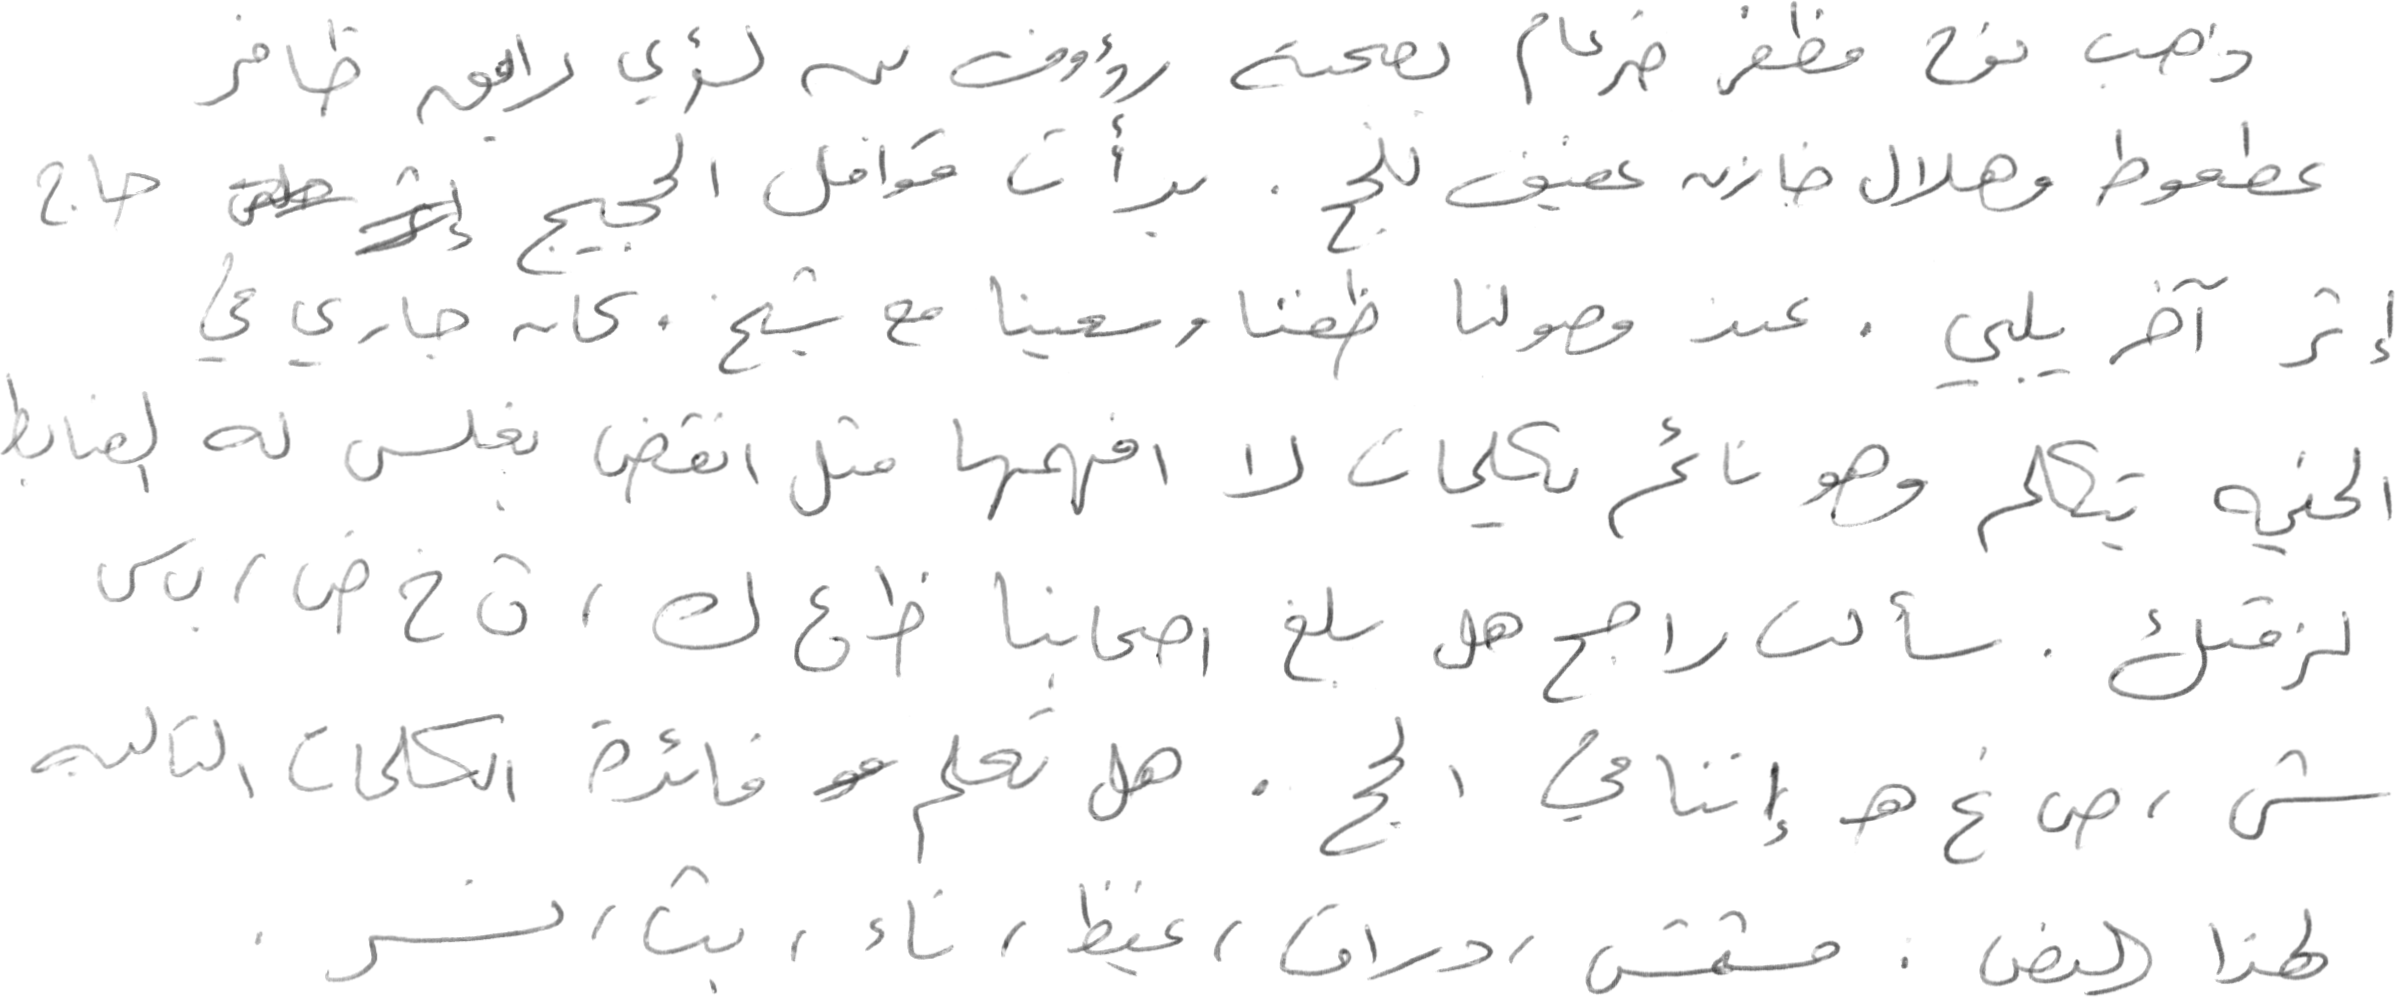 ذهب نوح مظفر ضرغام بصحبة رؤوف بن لؤي رافقه ظافر
عطعوط وهلال خازن عفيف فلج . بدأت قوافل الحجيج حاج
إثر آخر يلبي . عند وصولنا طفنا وسعينا مع شيخ . كان جاري في
الخيمة يتكلم وهو نائم بكلمات لا افهمها مثل انقض بغلس له الضابط
لزقتك . سألت راجح هل بلغ اصحابنا ظ ع ك ، ق خ ض ، ب س
ش ، ص غ هـ إننا في الحج . هل تعلم فائدة الكلمات التالية
لهذا النص : مشمش ، دراق ، غيظ ، ناء ، بث ، نسر .